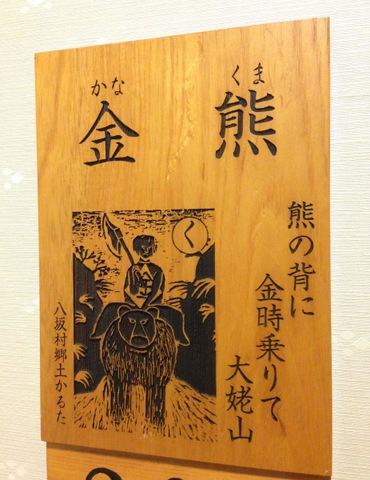 くま かな
熊 金
熊の背に
金時乗りて
大姥山
く
八坂村郷土かるた